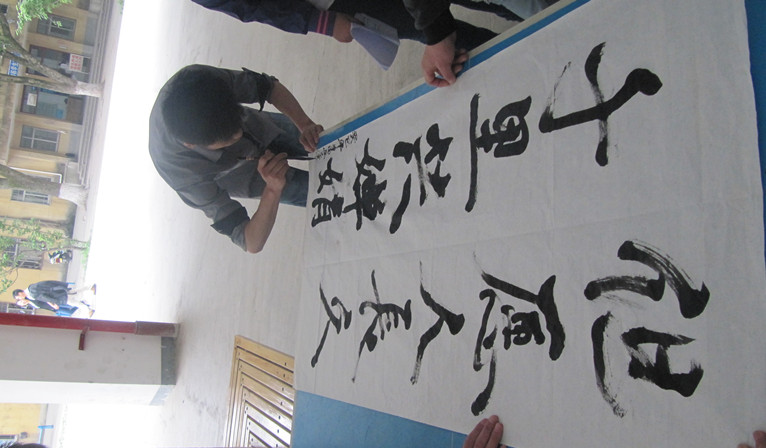 但愿人長久
千里共嬋娟